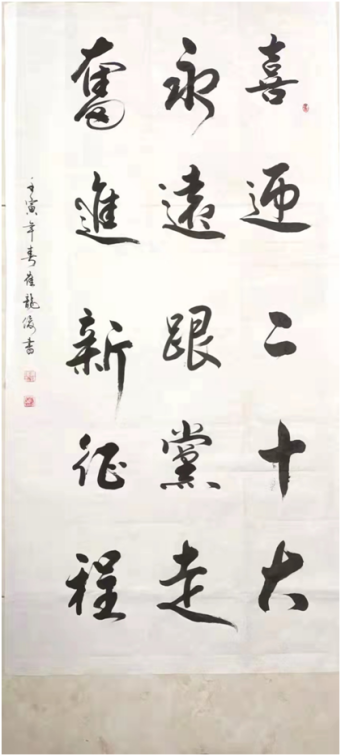 喜迎二十大
永遠跟黨走
奮進新征程
壬寅年春崔龍俊書